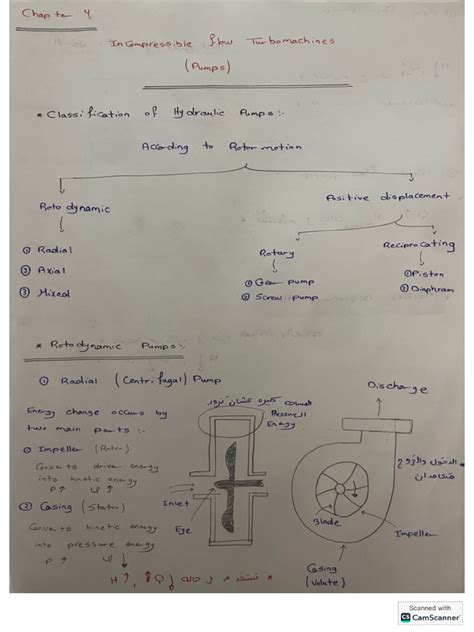 Chapter 4
Incompressible flow Turbomachines
(Pumps)
* Classification of Hydraulic Pumps :-
According to Rotor motion
Roto dynamic
① Radial
② Axial
③ Mixed
Positive displacement
Rotary
① Gear pump
② Screw pump
Reciprocating
① Piston
② Diaphram
* Rotodynamic Pumps :-
① Radial (Centrifugal) Pump
Energy change occurs by
two main parts :-
① Impeller (Rotor)
Converts driver energy
into kinetic energy
P↑ V↑
② Casing (Stator)
Converts kinetic energy
into pressure energy
P↑
كبيرة عشان نزود
Pressure
Energy
Inlet
Eye
Discharge
الدخول والخروج
متعامدان
Blade
Impeller
Casing
(Volute)
H↑, Q↓ نستخدم في حالة *
Scanned with
CS CamScanner